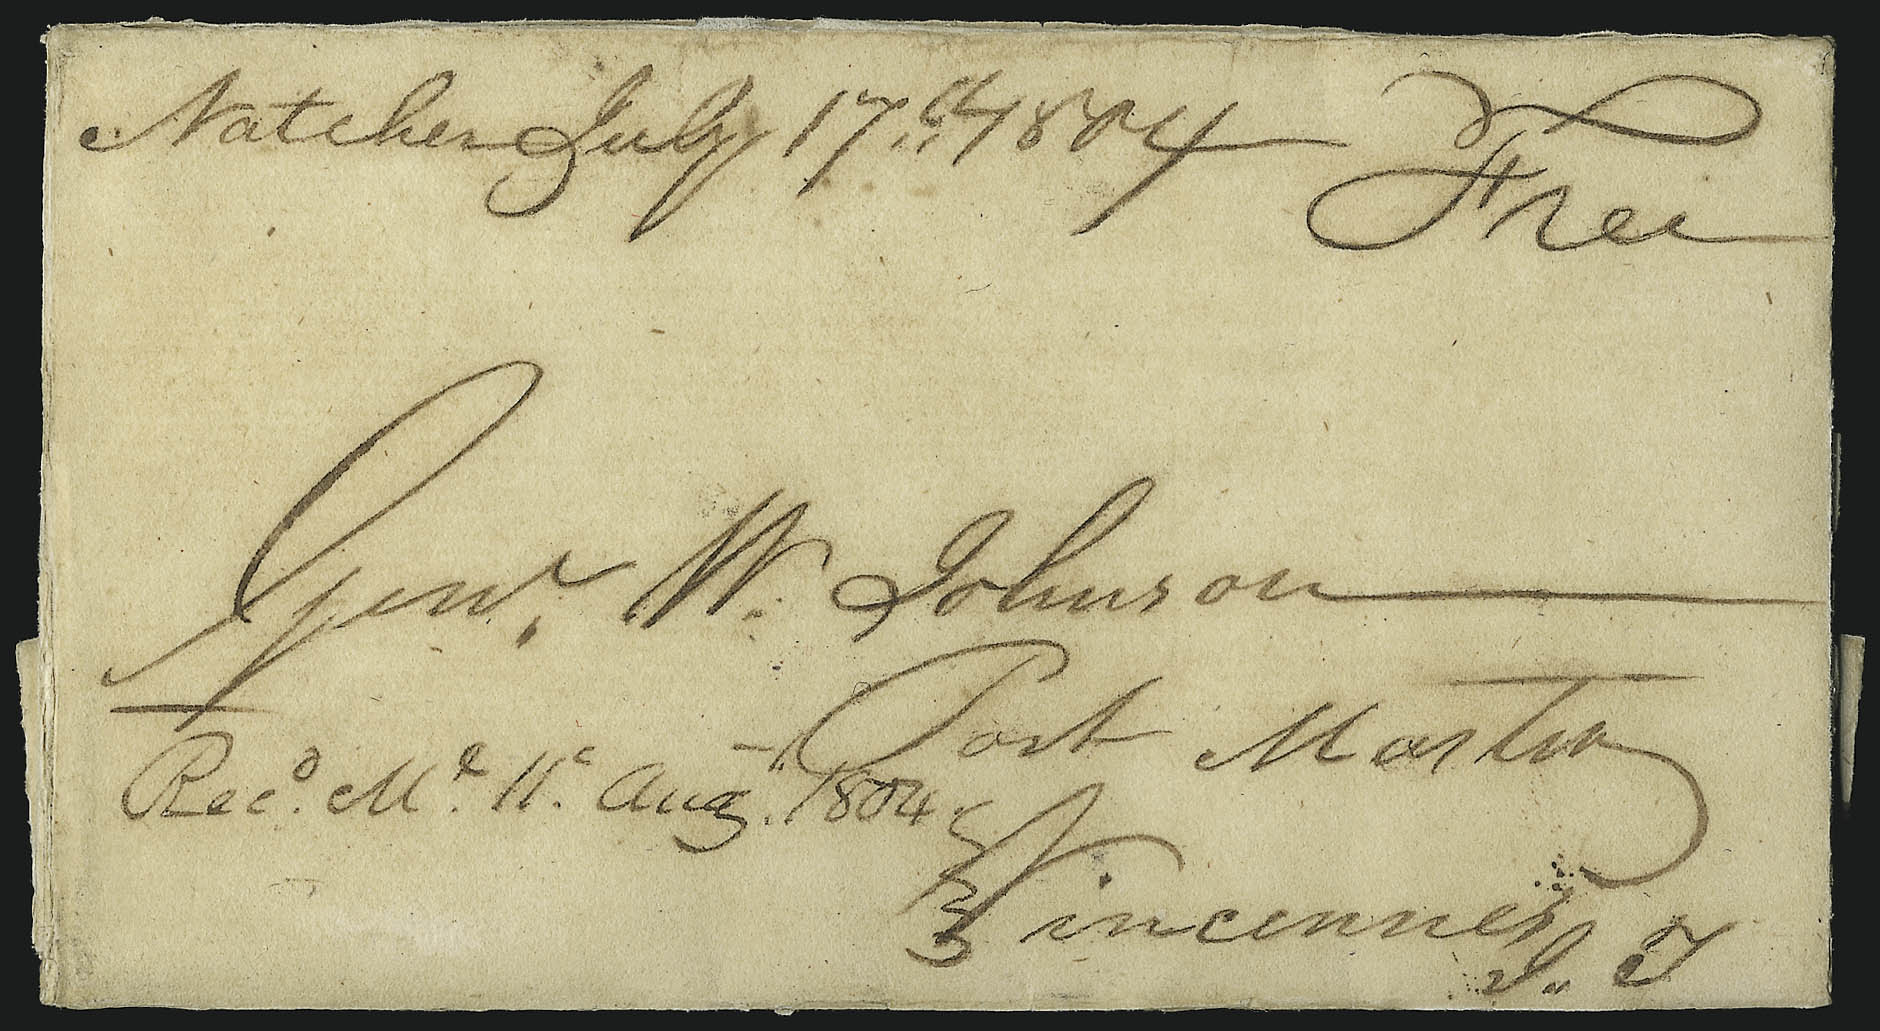 Natchez July 17th 1804 Free
Genl. W. Johnson
Post Master
Recd. 11. Aug. 1804
Vincennes
I. T